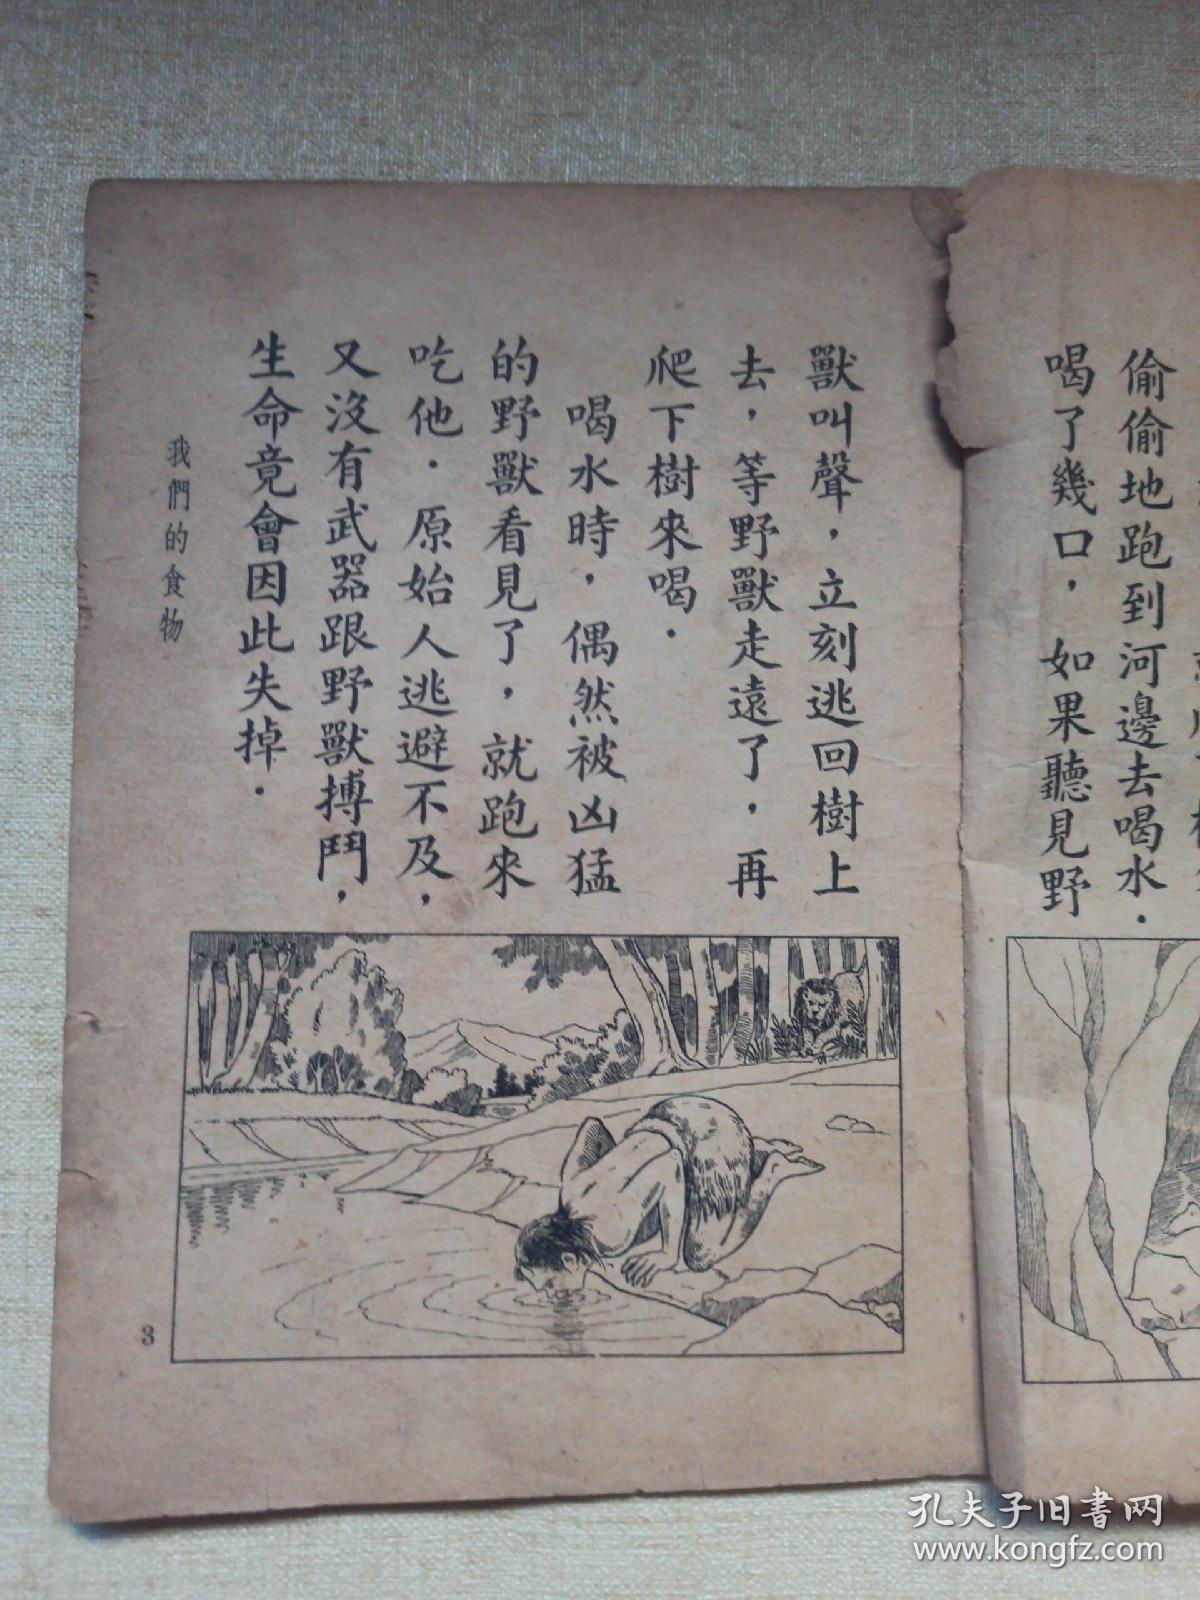 偷偷地跑到河邊去喝水．
喝了幾口，如果聽見野
獸叫聲，立刻逃回樹上
去，等野獸走遠了，再
爬下樹來喝．
喝水時，偶然被凶猛
的野獸看見了，就跑來
吃他．原始人逃避不及，
又沒有武器跟野獸搏鬥，
生命竟會因此失掉．
我們的食物
3
孔夫子旧书网
www.kongfz.com